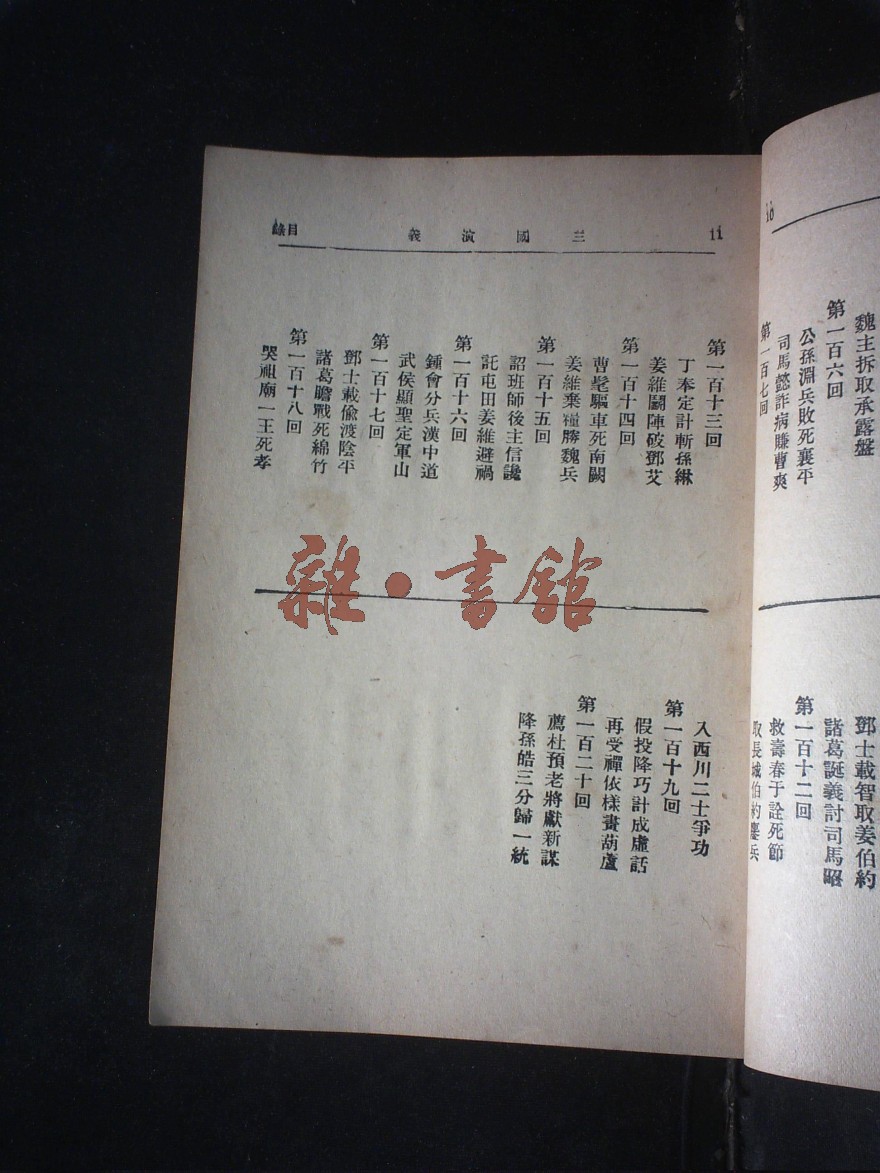 10
魏主拆取承露盤
第一百六回
公孫淵兵敗死襄平
司馬懿詐病賺曹爽
第一百七回
鄧士載智取姜伯約
諸葛誕義討司馬昭
第一百十二回
救壽春于詮死節
取長城伯約鏖兵
11
三國演義
目錄
第一百十三回
丁奉定計斬孫綝
姜維鬭陣破鄧艾
第一百十四回
曹髦驅車死南闕
姜維棄糧勝魏兵
第一百十五回
詔班師後主信讒
託屯田姜維避禍
第一百十六回
鍾會分兵漢中道
武侯顯聖定軍山
第一百十七回
鄧士載偸渡陰平
諸葛瞻戰死綿竹
第一百十八回
哭祖廟一王死孝
入西川二士爭功
第一百十九回
假投降巧計成虛話
再受禪依樣畫葫蘆
第一百二十回
薦杜預老將獻新謀
降孫皓三分歸一統
雜·書館